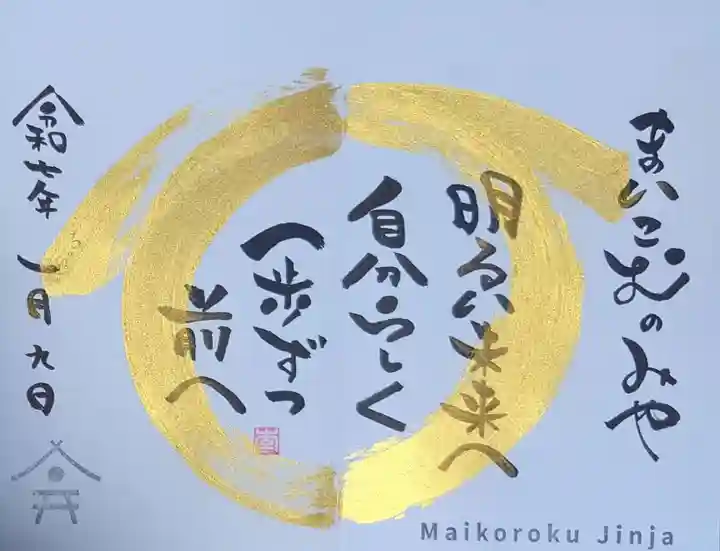 まいころのみや
明るい未来へ
自分らしく
一歩ずつ
前へ
令和七年 一月九日
Maikoroku Jinja